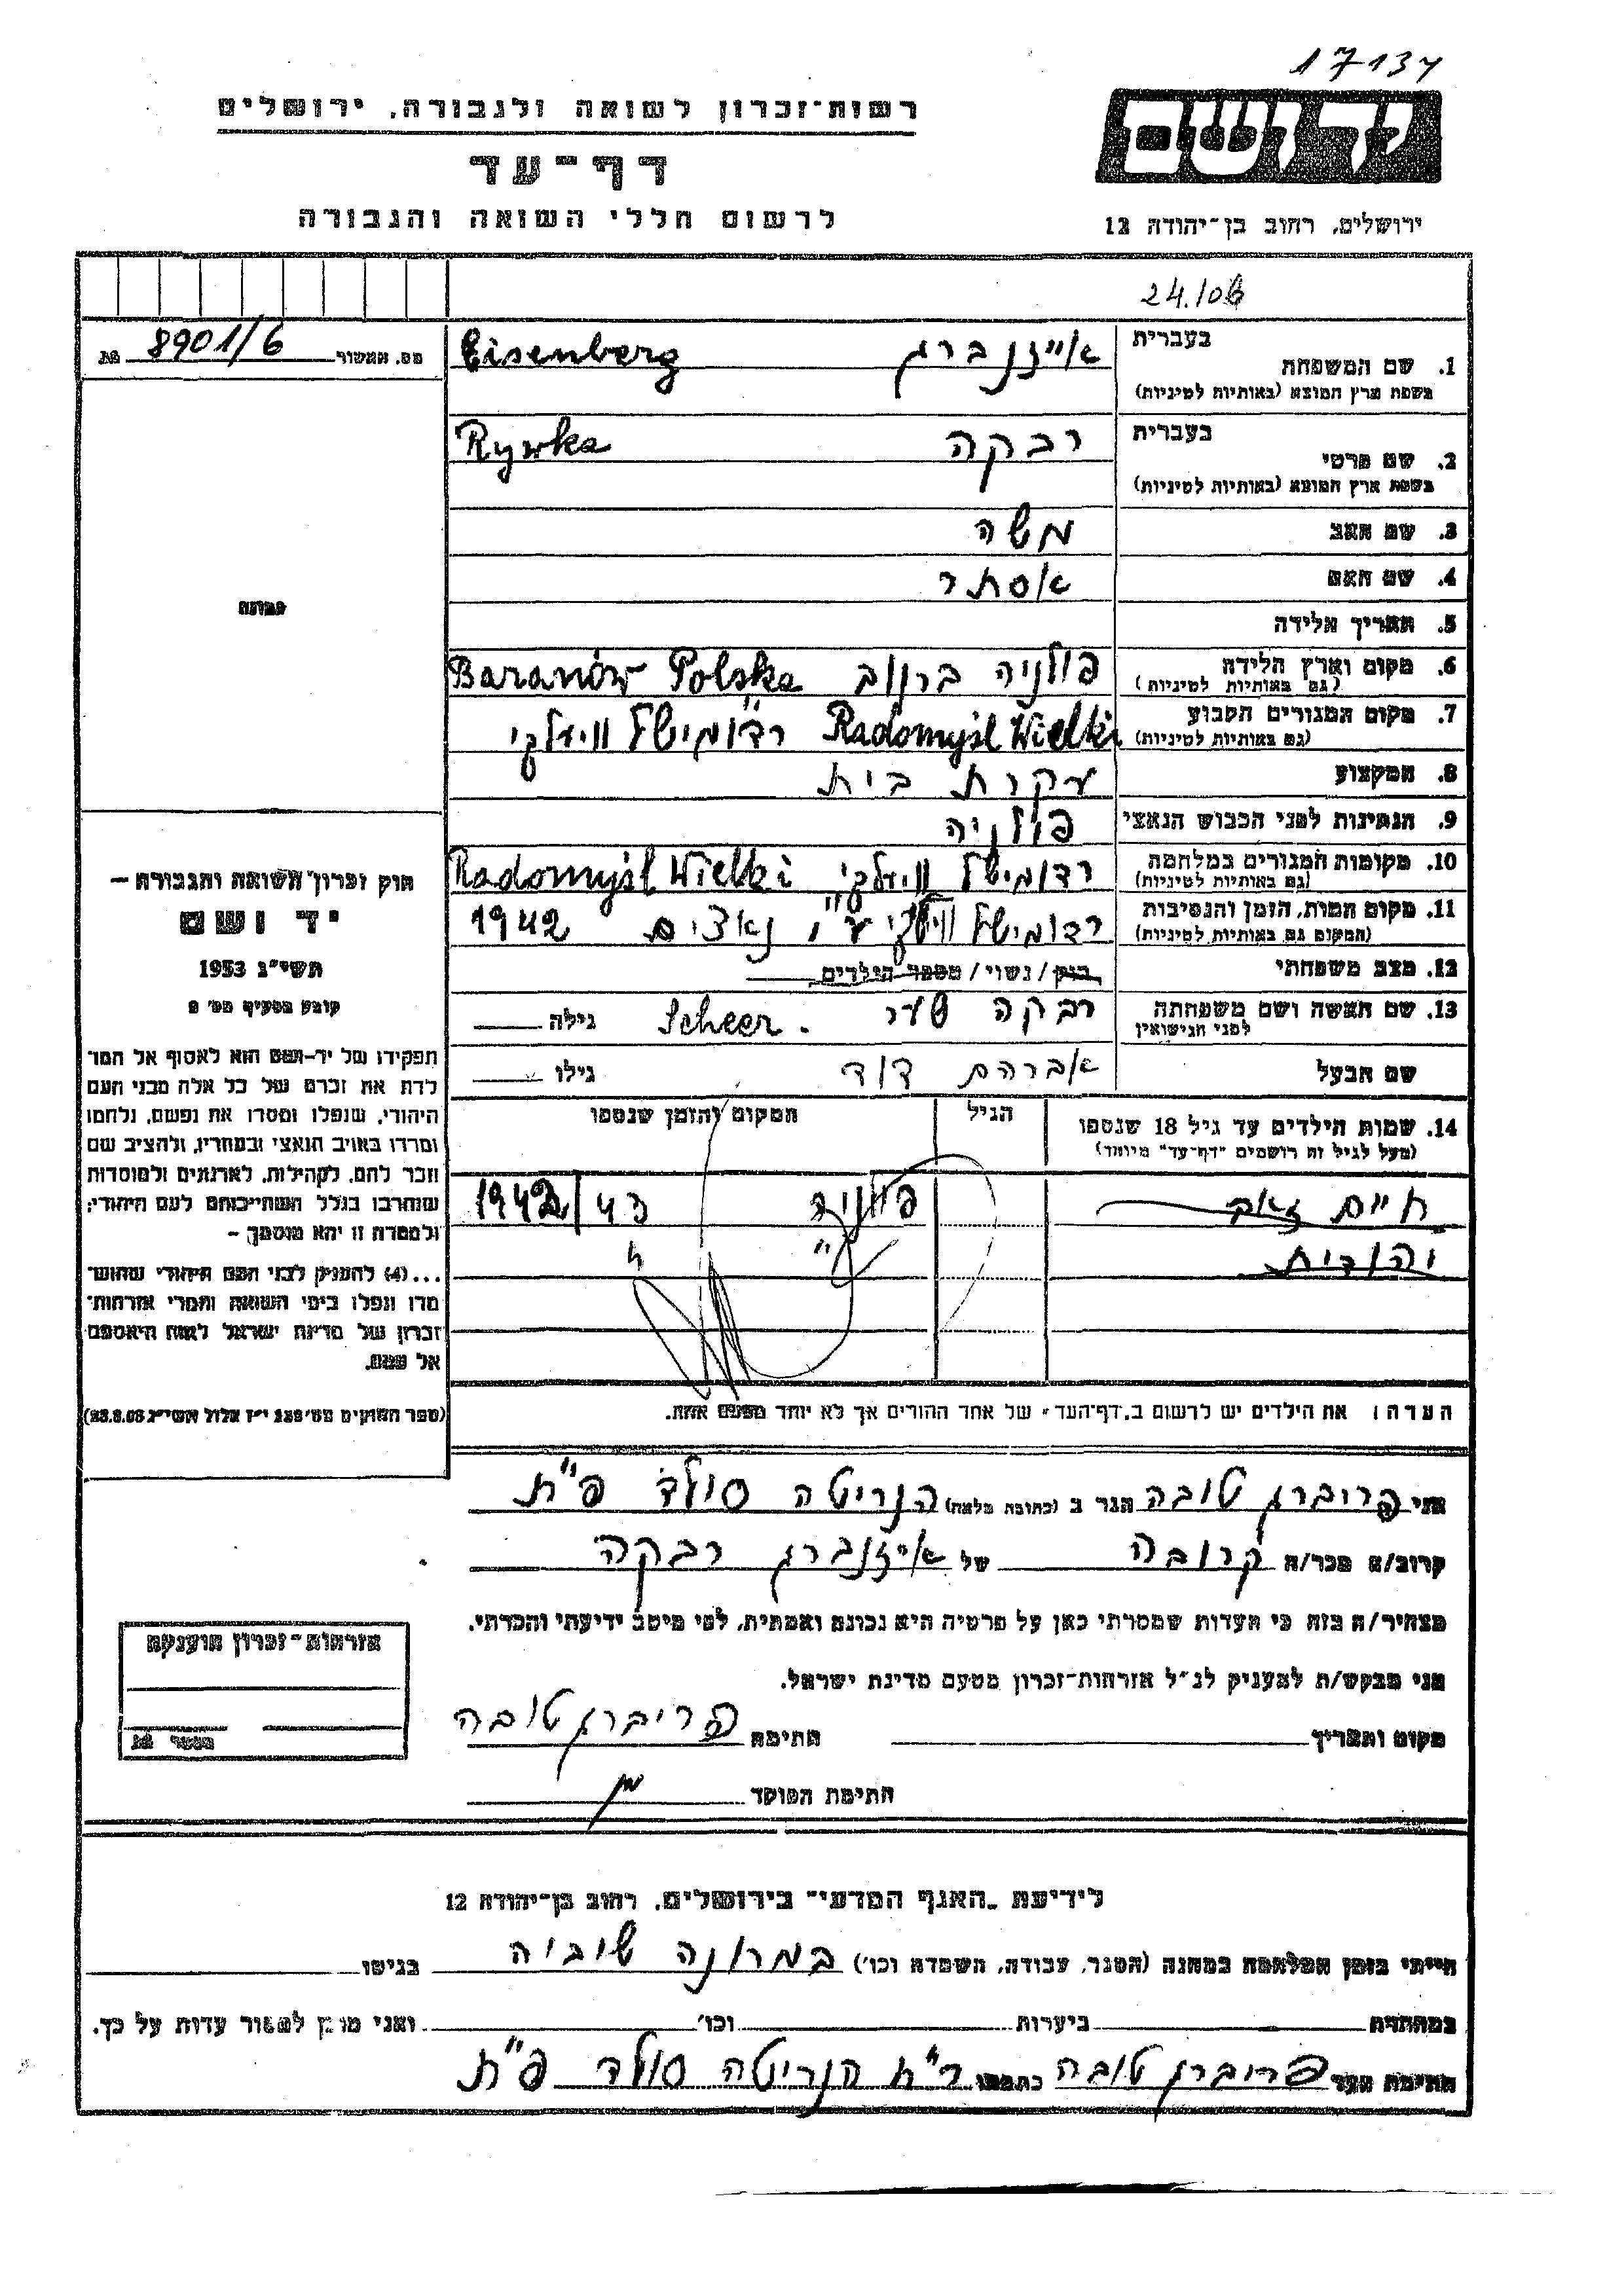 17134
רשות־זכרון לשואה ולגבורה, ירושלים
דף־עד
לרשום חללי השואה והגבורה
יד ושם
ירושלים, רחוב בן־יהודה 12
24.106
מס. 8901/6
בעברית
1. שם המשפחה
בשפת ארץ המוצא (באותיות לטיניות)
אייזנברג Eisenberg
בעברית
2. שם פרטי
בשפת ארץ המוצא (באותיות לטיניות)
רבקה Rywka
3. שם האב משה
4. שם האם אסתר
5. תאריך הלידה
6. מקום וארץ הלידה
(גם באותיות לטיניות)
פולניה ברנוב Baranów Polska
7. מקום המגורים הקבוע
(גם באותיות לטיניות)
Radomyśl Wielki רדומישל ווילקי
8. המקצוע עקרת בית
9. הנתינות לפני הכבוש הנאצי פולניה
10. מקומות המגורים במלחמה
(גם באותיות לטיניות)
רדומישל ווילקי Radomyśl Wielki
11. מקום המות, הזמן והנסיבות
(המקום גם באותיות לטיניות)
רדומישל ווילקי ע"י נאצים 1942
12. מצב משפחתי רוק / נשוי / מספר הילדים
13. שם האשה ושם משפחתה
לפני הנישואין
רבקה שער Scheer. גילה
שם הבעל אברהם דוד גילו
14. שמות הילדים עד גיל 18 שנספו
(מעל לגיל זה רושמים "דף־עד" מיוחד)
הגיל
המקום והזמן שנספו
חיים זאב פולניה 1942/43
יהודית " "
הערה: את הילדים יש לרשום ב"דף־העד" של אחד ההורים אך לא יותר מפעם אחת.
תמונה
חוק זכרון השואה והגבורה —
יד ושם
תשי"ג 1953
קובע בסעיף מס'
תפקידו של יד־ושם הוא לאסוף אל המו־
לדת את זכרם של כל אלה מבני העם
היהודי, שנפלו ומסרו את נפשם, נלחמו
ומרדו באויב הנאצי ובעוזריו, ולהציב שם
וזכר להם, לקהילות, לארגונים ולמוסדות
שנחרבו בגלל השתייכותם לעם היהודי;
ולמטרה זו יהא מוסמך —
...(4) להעניק לבני העם היהודי שהוש־
מדו ונפלו בימי השואה והמרי אזרחות־
זכרון של מדינת ישראל לאות היאספם
אל עמם.
אני פרוברג טובה הגר ב (כתובת מלאה) הנריטה סולד פ"ת
קרוב/ה מכר/ה קרובה של אייזנברג רבקה
מצהיר/ה בזה כי העדות שמסרתי כאן על פרטיה היא נכונה ואמתית, לפי מיטב ידיעתי והכרתי.
אני מבקש/ת להעניק לנ"ל אזרחות־זכרון מטעם מדינת ישראל.
מקום ותאריך חתימה פריברג טובה
חתימת הפוקד
אזרחות־זכרון הוענקה
מספר
לידיעת "האגף המדעי" בירושלים, רחוב בן־יהודה 12
הייתי בזמן המלחמה במחנה (הסגר, עבודה, השמדה וכו') בגיטו
במחתרת ביערות וכו' ואני מוכן למסור עדות על כך.
חתימת העד פרוברג טובה כתבתו הנריטה סולד פ"ת